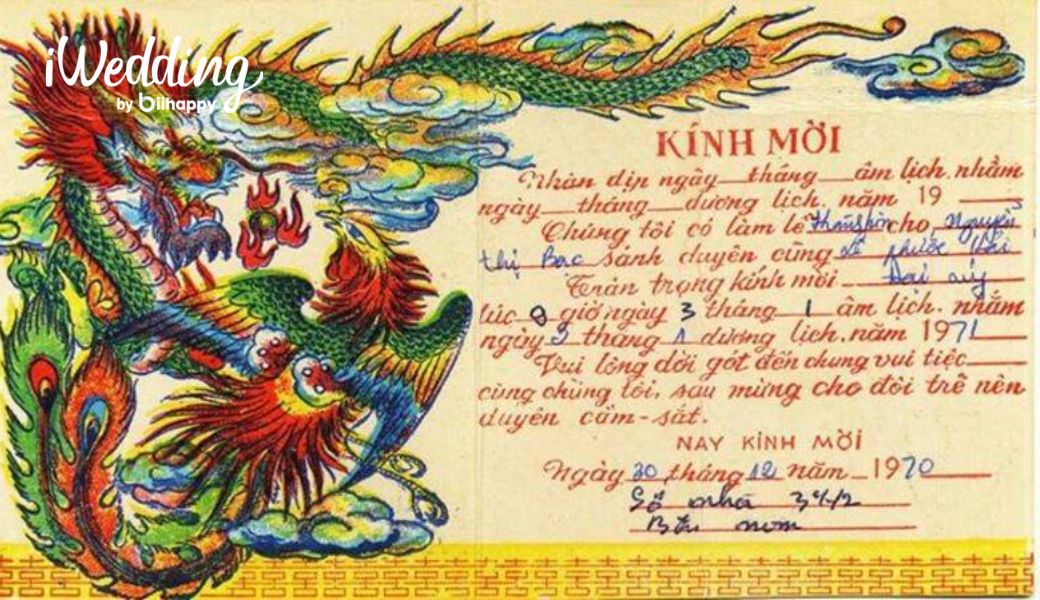 iWedding
by biihappy
KÍNH MỜI
Nhân dịp ngày tháng âm lịch. nhằm
ngày tháng dương lịch. năm 19
Chúng tôi có làm lễ cho Nguyễn
thị Bạc sánh duyên cùng phước
Trân trọng kính mời Đại úy
lúc 9 giờ ngày 3 tháng 1 âm lịch. nhằm
ngày 3 tháng 1 dương lịch. năm 1971
Vui lòng dời gót đến chung vui tiệc
cùng chúng tôi, sau mừng cho đôi trẻ nên
duyên cầm-sắt.
NAY KÍNH MỜI
Ngày 30 tháng 12 năm 1970
Số nhà